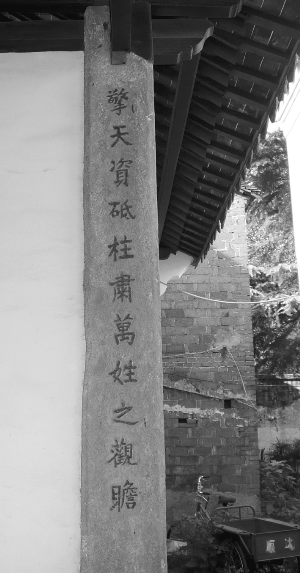 擎天資砥柱肅萬姓之觀瞻